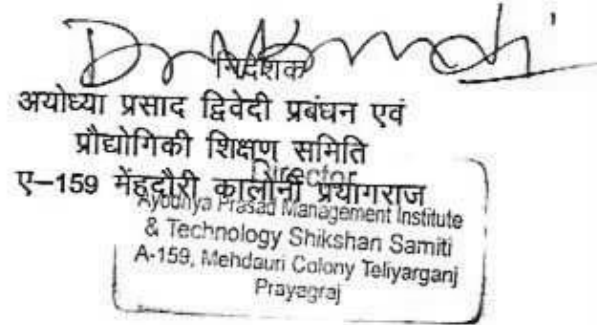 निदेशक
अयोध्या प्रसाद द्विवेदी प्रबंधन एवं
प्रौद्योगिकी शिक्षण समिति
ए–159 मेंहदौरी कालोनी प्रयागराज
Director
Ayodhya Prasad Management Institute
& Technology Shikshan Samiti
A-159, Mehdauri Colony Teliyarganj
Prayagraj